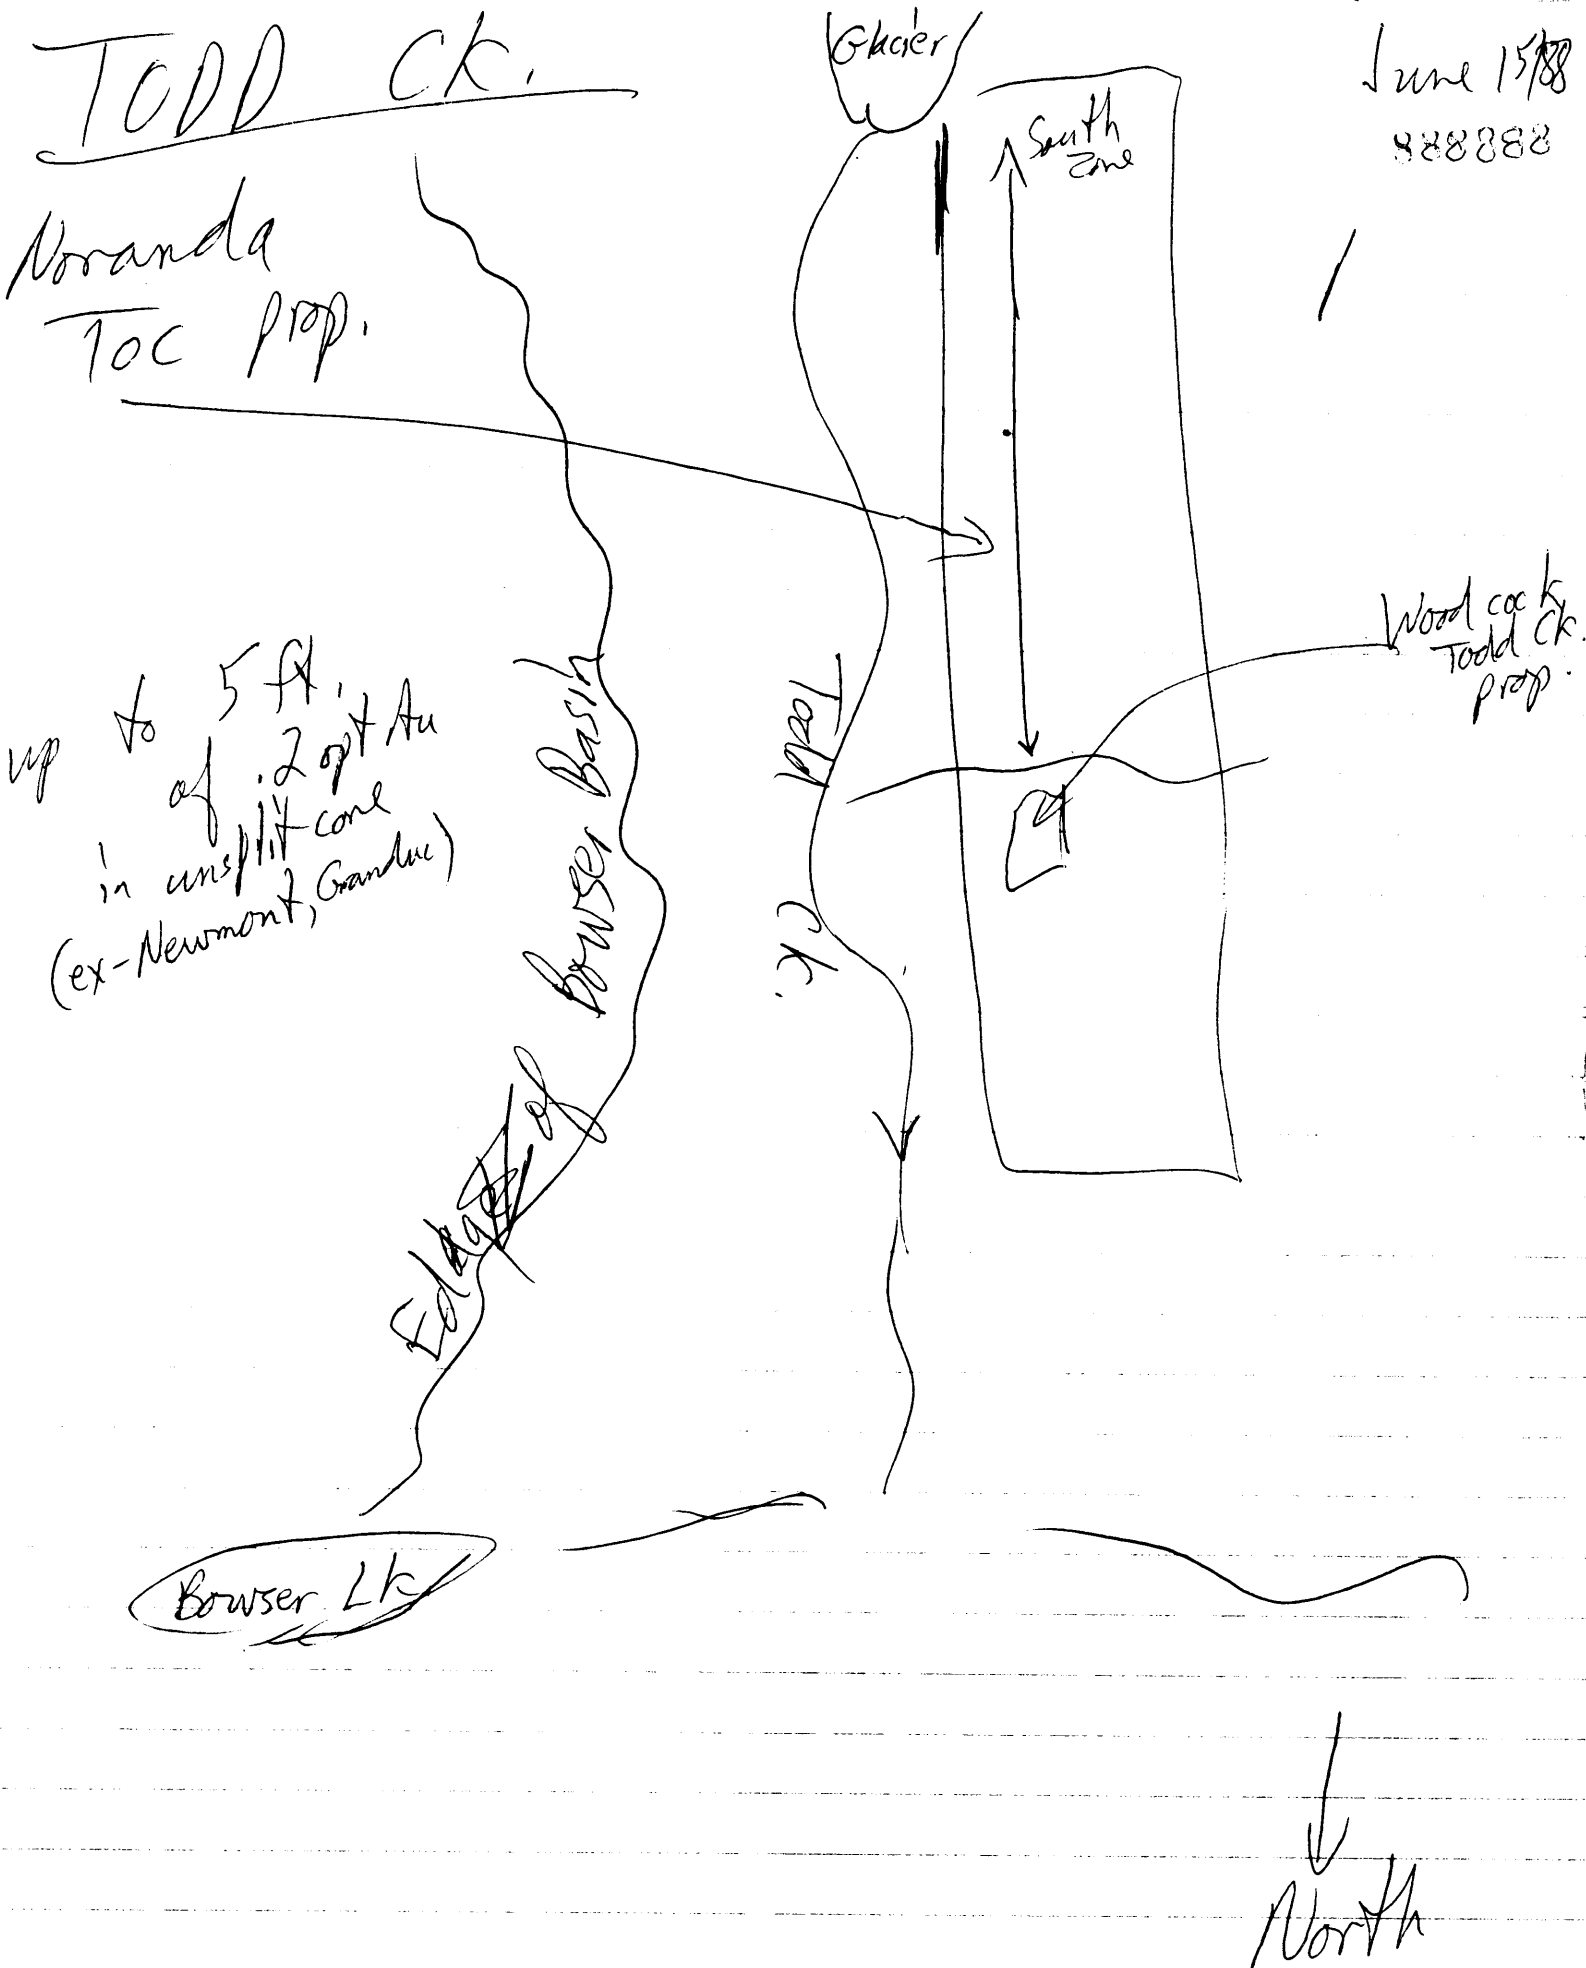 TODD CK.
Glacier
June 15/88
888888
South
Zone
Noranda
TOC prop.
Wood cock
Todd Ck.
prop.
up to 5 ft.
of .2 opt Au
in unsplit core
(ex-Newmont, Granduc)
Edge of Bowser Basin
Todd Ck.
Bowser Lk
North